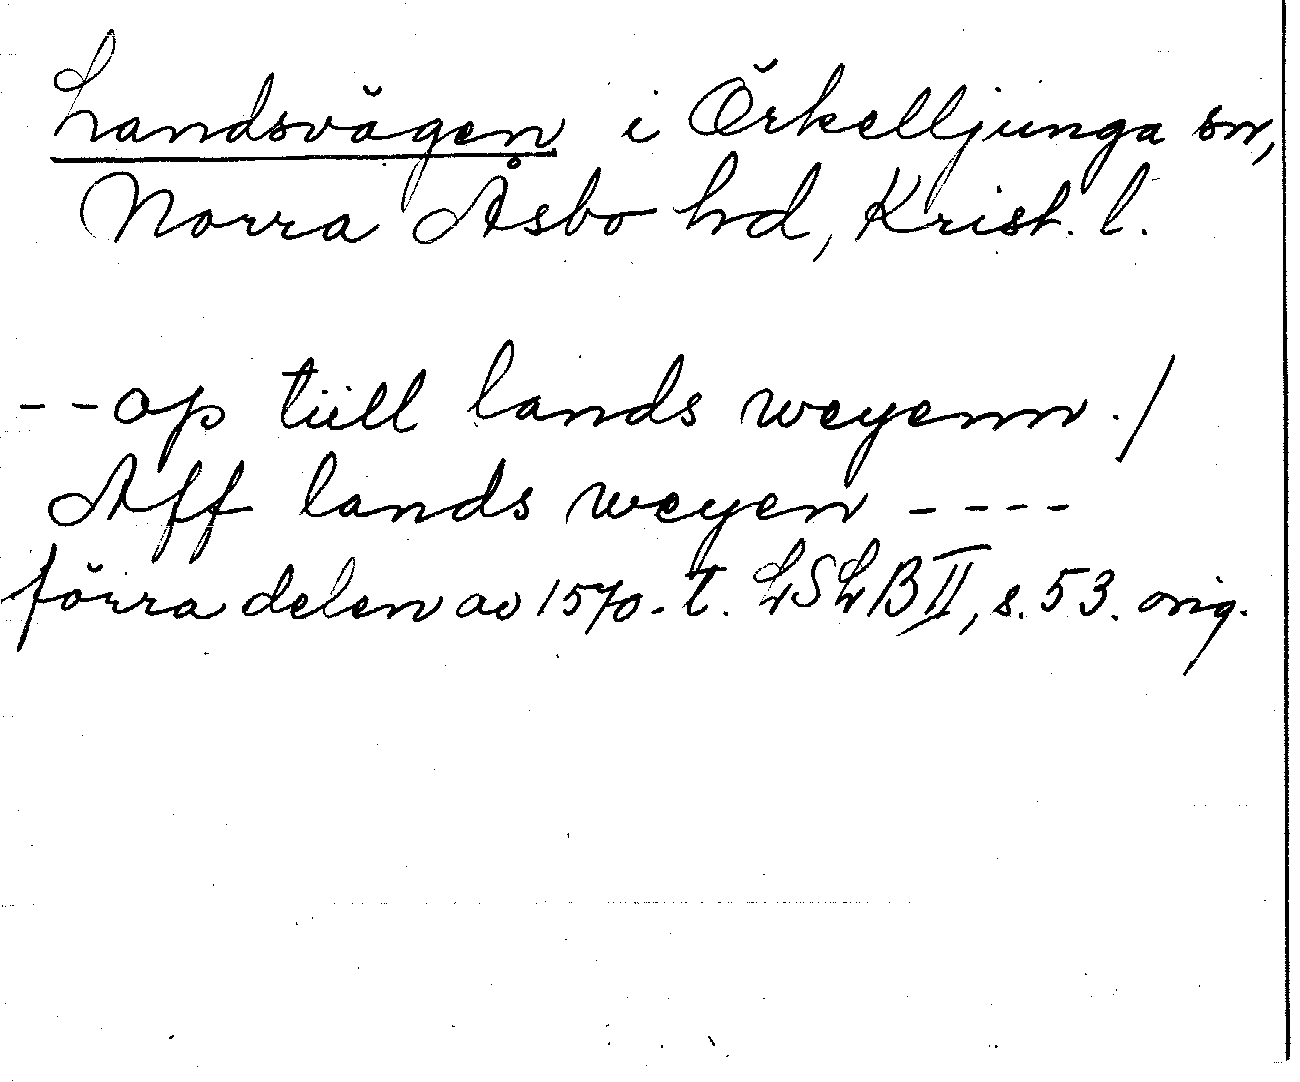 Landsvägen i Örkelljunga sn,
Norra Åsbo hd, Krist. l.
--op tiill lands weyenn ./
Aff lands weyen ----
förra delen av 1570-t. LSLB II, s. 53. orig.